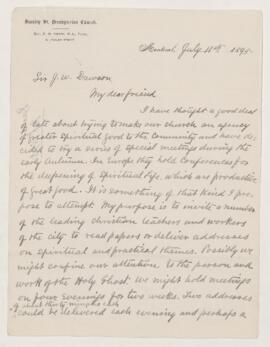 Stanley St. Presbyterian Church.
Montreal, July 11th 189
Sir J. W. Dawson
My dear friend
I have thought a good deal
of late about trying to make our church an agency
of greater spiritual good to the community and have de-
cided to try a series of special meetings during the
early Autumn. In Europe they hold Conferences for
the deepening of spiritual life, which are productive
of great good. It is something of that kind I pro-
pose to attempt. My purpose is to invite a number
of the leading christian teachers and workers
of the city to read papers or deliver addresses
on spiritual and practical themes. Possibly we
might confine our attention to the person and
work of the Holy Ghost. We might hold meetings
on four evenings for two weeks. Two addresses
of about thirty minutes each
could be delivered each evening and perhaps a